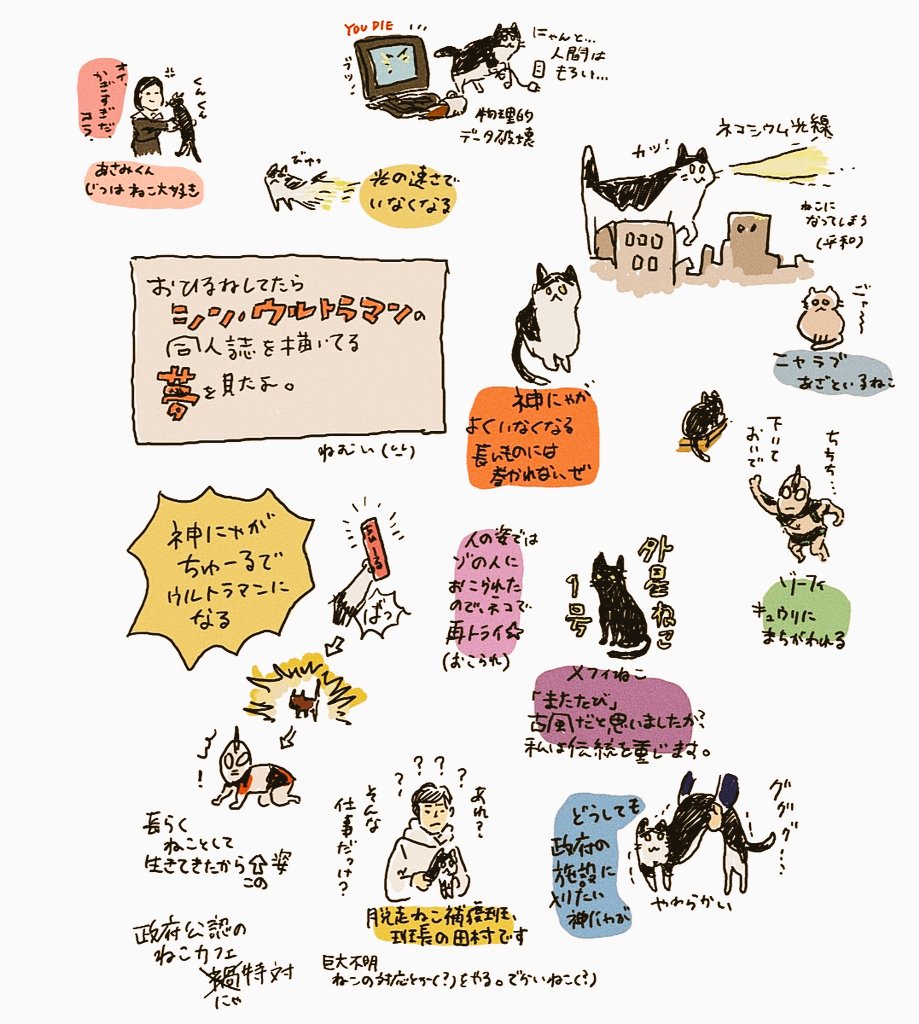 YOU DIE
ブツッ
にゃんと…
人間は
もろい…
物理的
データ破壊
オイ、
かぎすぎだ、
コラ
くんくん
あさみくん
じつは ねこ大好き
びゅっ
光の速さで
いなくなる
カッ!
ネコシウム光線
ねこに
なってしまう
(平和)
おひるねしてたら
シン・ウルトラマンの
同人誌を描いてる
夢を見たよ。
ねむい
神にゃが
よくいなくなる
長いものには
巻かれないぜ
ゴァ〜〜
ニャラブ
あざといるねこ
下りて
おいで
ちちち…
ゾーフィ
キュウリに
まちがわれる
神にゃが
ちゅーるで
ウルトラマンに
なる
ちゅーる
ばっ
人の姿では
ゾの人に
おこられた
ので、ネコで
再トライ☆
(おこられ)
外星ねこ
1号
メフィねこ
「またたび」
古風だと思いましたか?
私は伝統を重じます。
!
長らく
ねことして
生きてきたから
この
姿
????
あれ?
そんな
仕事だっけ?
脱走ねこ補獲班、
班長の田村です
どうしても
政府の
施設に
入りたい
神にゃが
ググググ…
やわらかい
政府公認の
ねこカフェ
禍特対
にゃ
巨大不明
ねこの対応とか(?)をやる。でかいねこ(?)